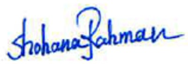 Shohana Rahman